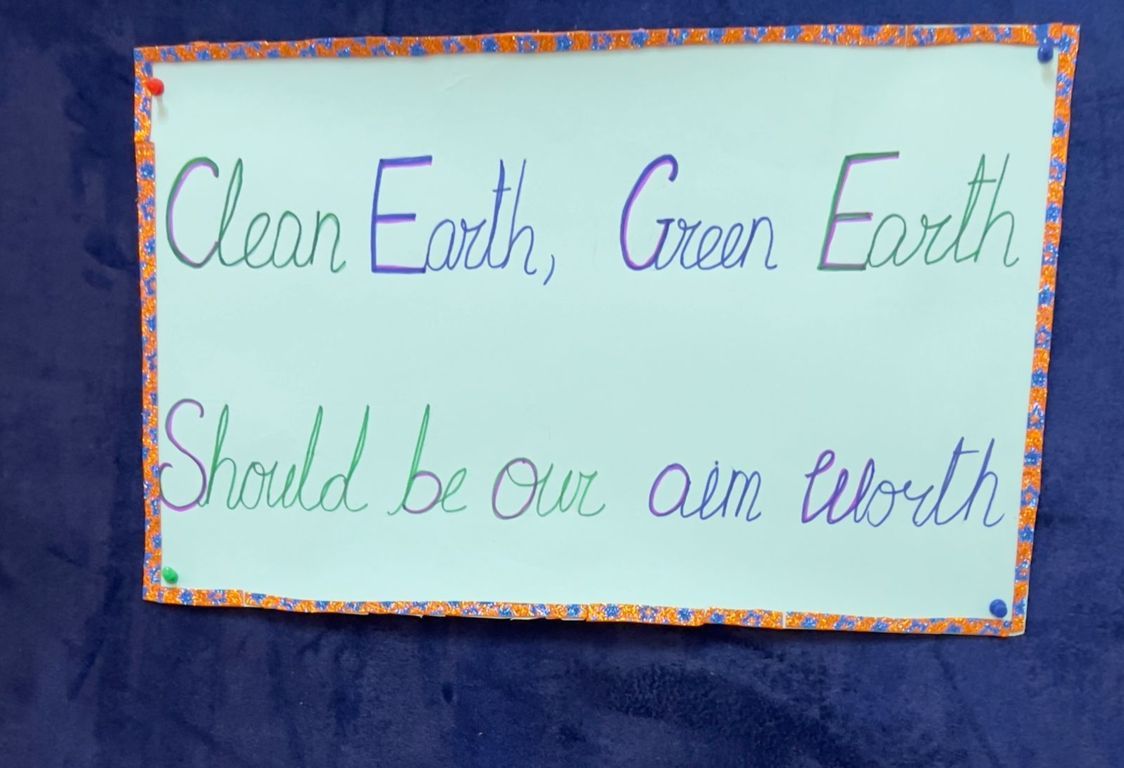 Clean Earth, Green Earth
Should be our aim Worth